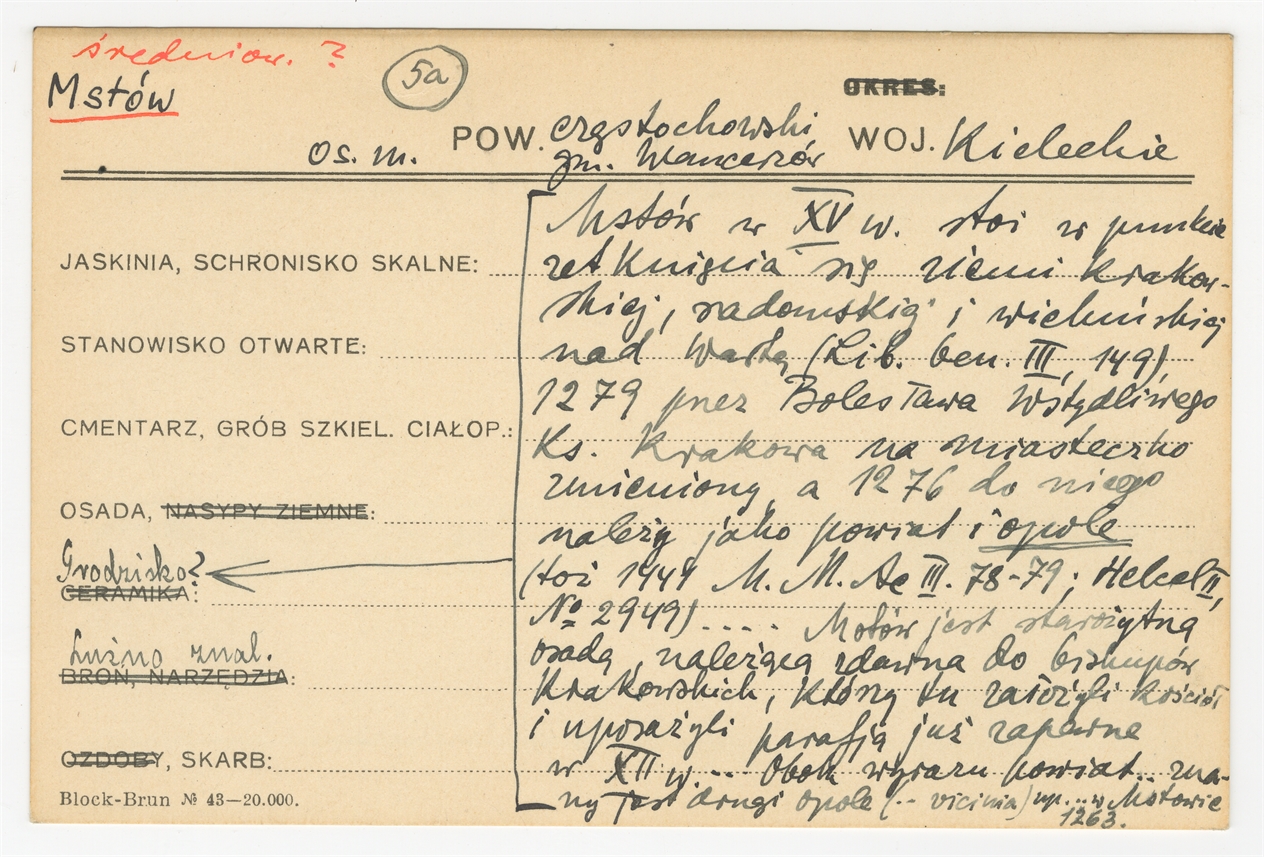 średniow. ?
Mstów
5a
OKRES:
os. m. POW. częstochowski WOJ. Kieleckie
gm. Wancerzów
JASKINIA, SCHRONISKO SKALNE:
STANOWISKO OTWARTE:
CMENTARZ, GRÓB SZKIEL. CIAŁOP.:
OSADA, NASYPY ZIEMNE:
Grodzisko?
CERAMIKA:
Luźno znal.
BROŃ, NARZĘDZIA:
OZDOBY, SKARB:
Block-Brun № 43—20.000.
Mstów w XV w. stoi w punkcie
zetknięcia się ziemi krakow-
skiej, radomskiej i wieluńskiej
nad Wartą (Lib. ben. III, 149),
1279 przez Bolesława Wstydliwego
Ks. Krakowa na miasteczko
zmieniony, a 1276 do niego
należy jako powiat i opole
(toż 1441 M. M. Ae III. 78-79; Helcel II,
№ 2949) .... Mstów jest starożytną
osadą, należącą zdawna do biskupów
Krakowskich, którzy tu założyli kościół
i uposażyli parafją już zapewne
w XII w... Obok wyrazu powiat.. zna-
ny jest drugi opole (.. vicinia) np. .. w Mstowie
1263.